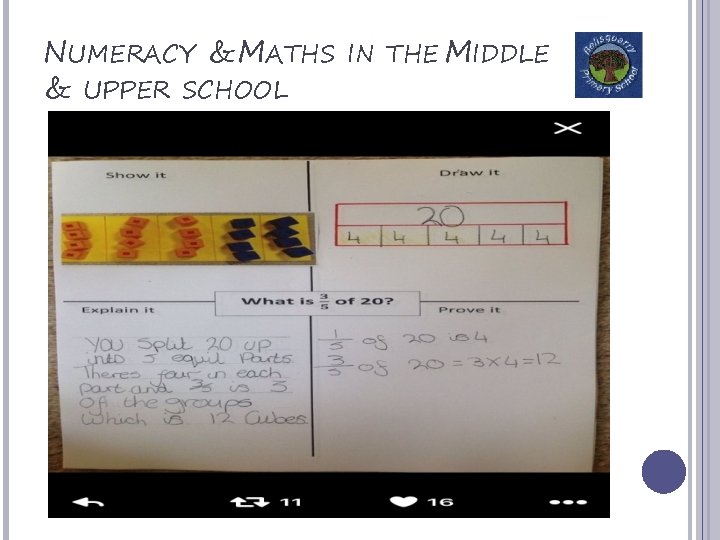 NUMERACY & MATHS IN THE MIDDLE
& UPPER SCHOOL
Bellsquarry
Primary School
Show it
Draw it
20
4 4 4 4 4
What is 3/5 of 20?
Explain it
Prove it
You Split 20 up
into 5 equil Parts
Theres four in each
part and 3/5 is 3
Of the groups
Which is 12 Cubes.
1/5 of 20 is 4
3/5 of 20 = 3×4=12
11
16